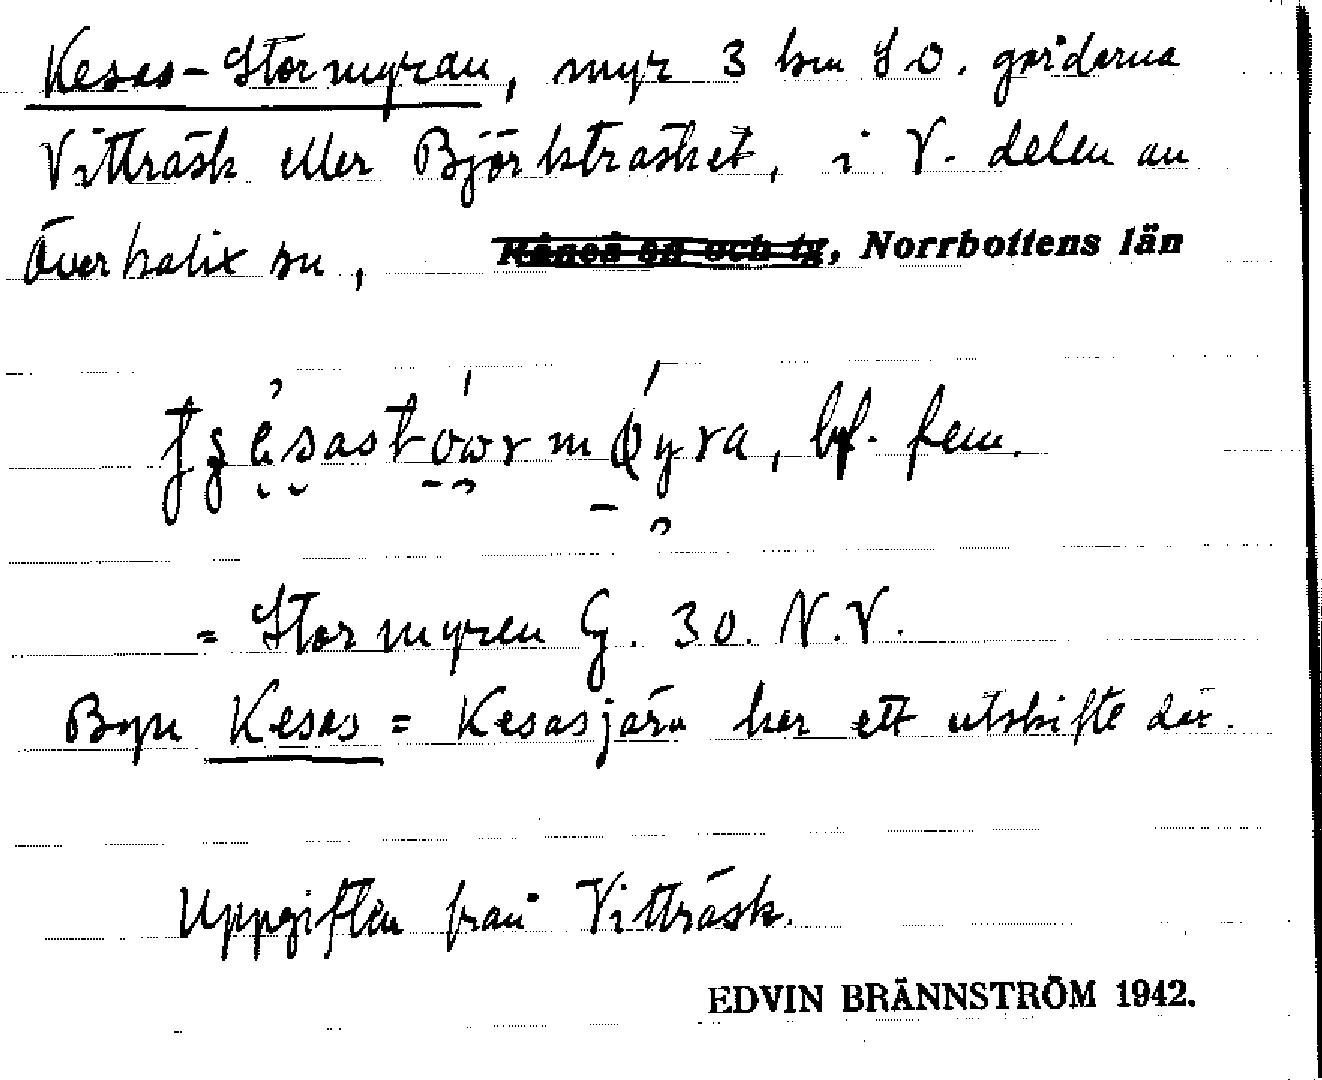 Kesas-Stormyran, myr 3 km S O. gårdarna
Vitträsk eller Björkträsket, i V. delen av
Överkalix sn,
Råneå sn och tg, Norrbottens län
bf. fem.
= Stormyren G. 30. N.V.
Byn Kesas = Kesasjärv har ett utskifte där.
Uppgiften från Vitträsk.
EDVIN BRÄNNSTRÖM 1942.